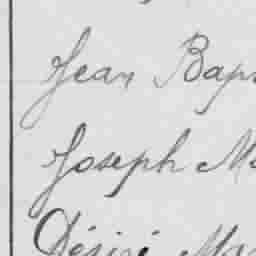 Jean Bap
Joseph Ma
Désiré Mar